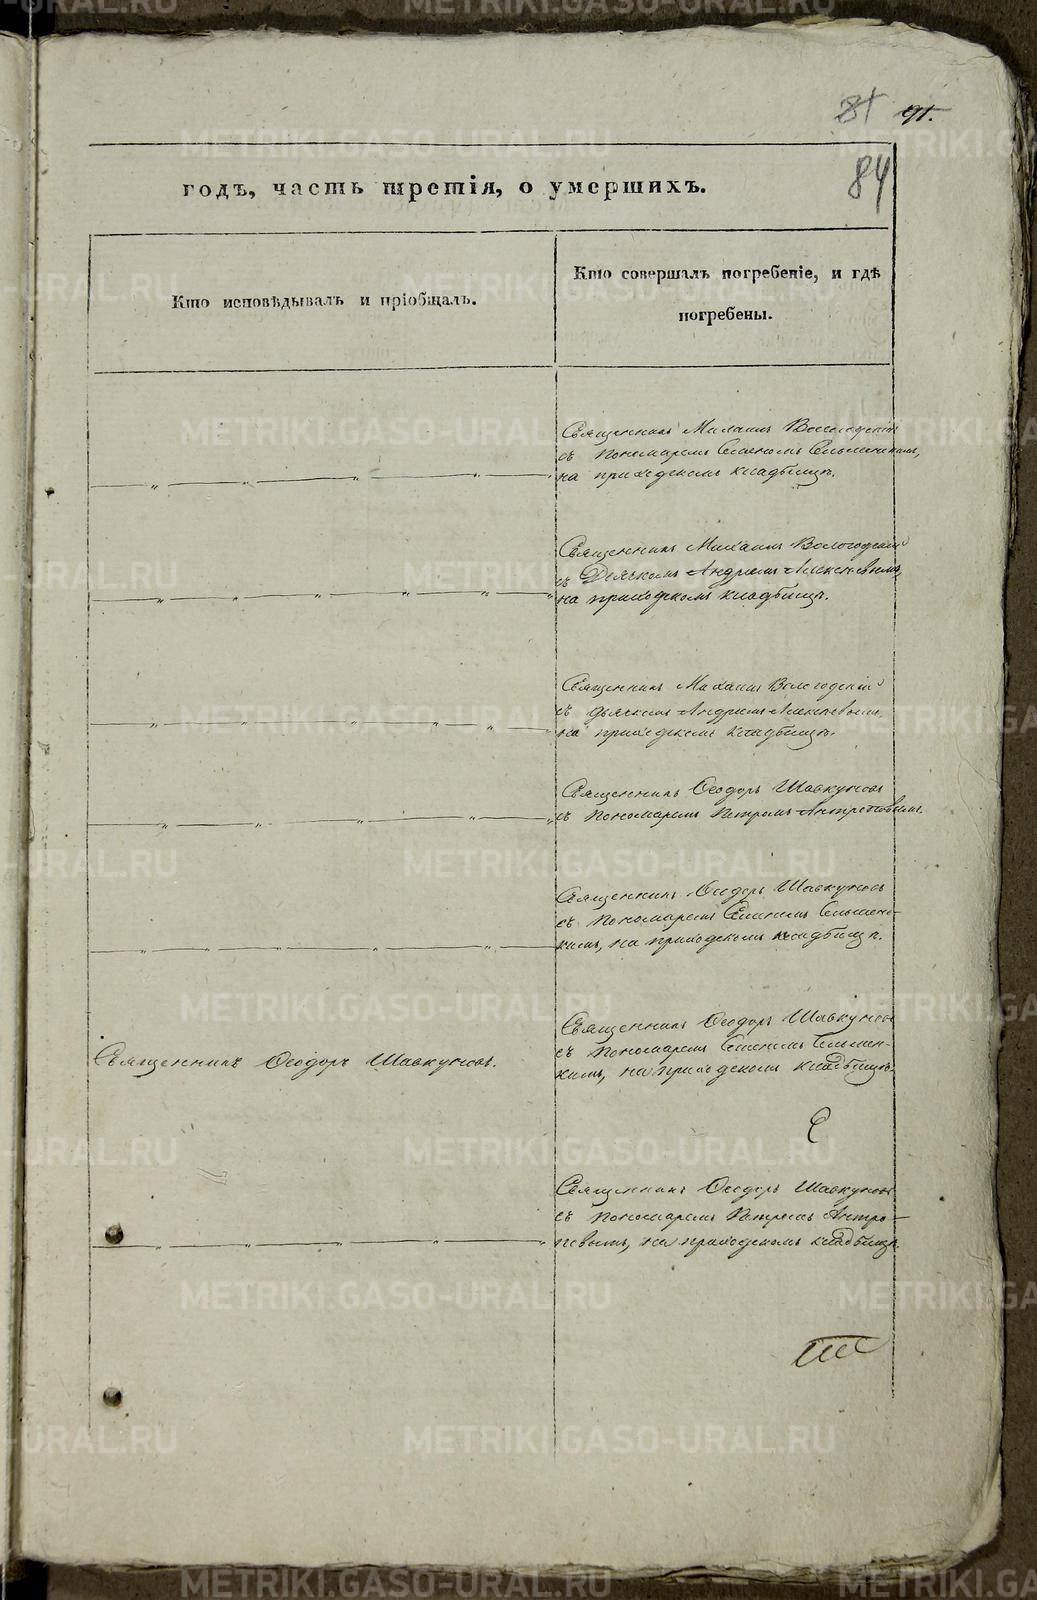 81 91.
84
годъ, часть третія, о умершихъ.
Кто исповѣдывалъ и пріобщалъ.
Кто совершалъ погребеніе, и гдѣ
погребены.
Священникъ Михаилъ Вологодскій
съ пономаремъ
на приходскомъ кладбищѣ.
Священникъ Михаилъ Вологодскій
съ Дьячкомъ Андреемъ Алексѣевымъ,
на приходскомъ кладбищѣ.
Священникъ Михаилъ Вологодскій
съ дьячкомъ Андреемъ Алексѣевымъ
на приходскомъ кладбищѣ.
Священникъ Ѳеодоръ Шавкуновъ
съ пономаремъ Петромъ Антроповымъ.
Священникъ Ѳеодоръ Шавкуновъ
съ пономаремъ
кимъ, на приходскомъ кладбищѣ.
Священникъ Ѳеодоръ Шавкуновъ.
Священникъ Ѳеодоръ Шавкуновъ
съ пономаремъ
кимъ, на приходскомъ кладбищѣ.
Священникъ Ѳеодоръ Шавкуновъ
съ пономаремъ Петромъ Антро-
повымъ, на приходскомъ кладбищѣ.
METRIKI.GASO-URAL.RU